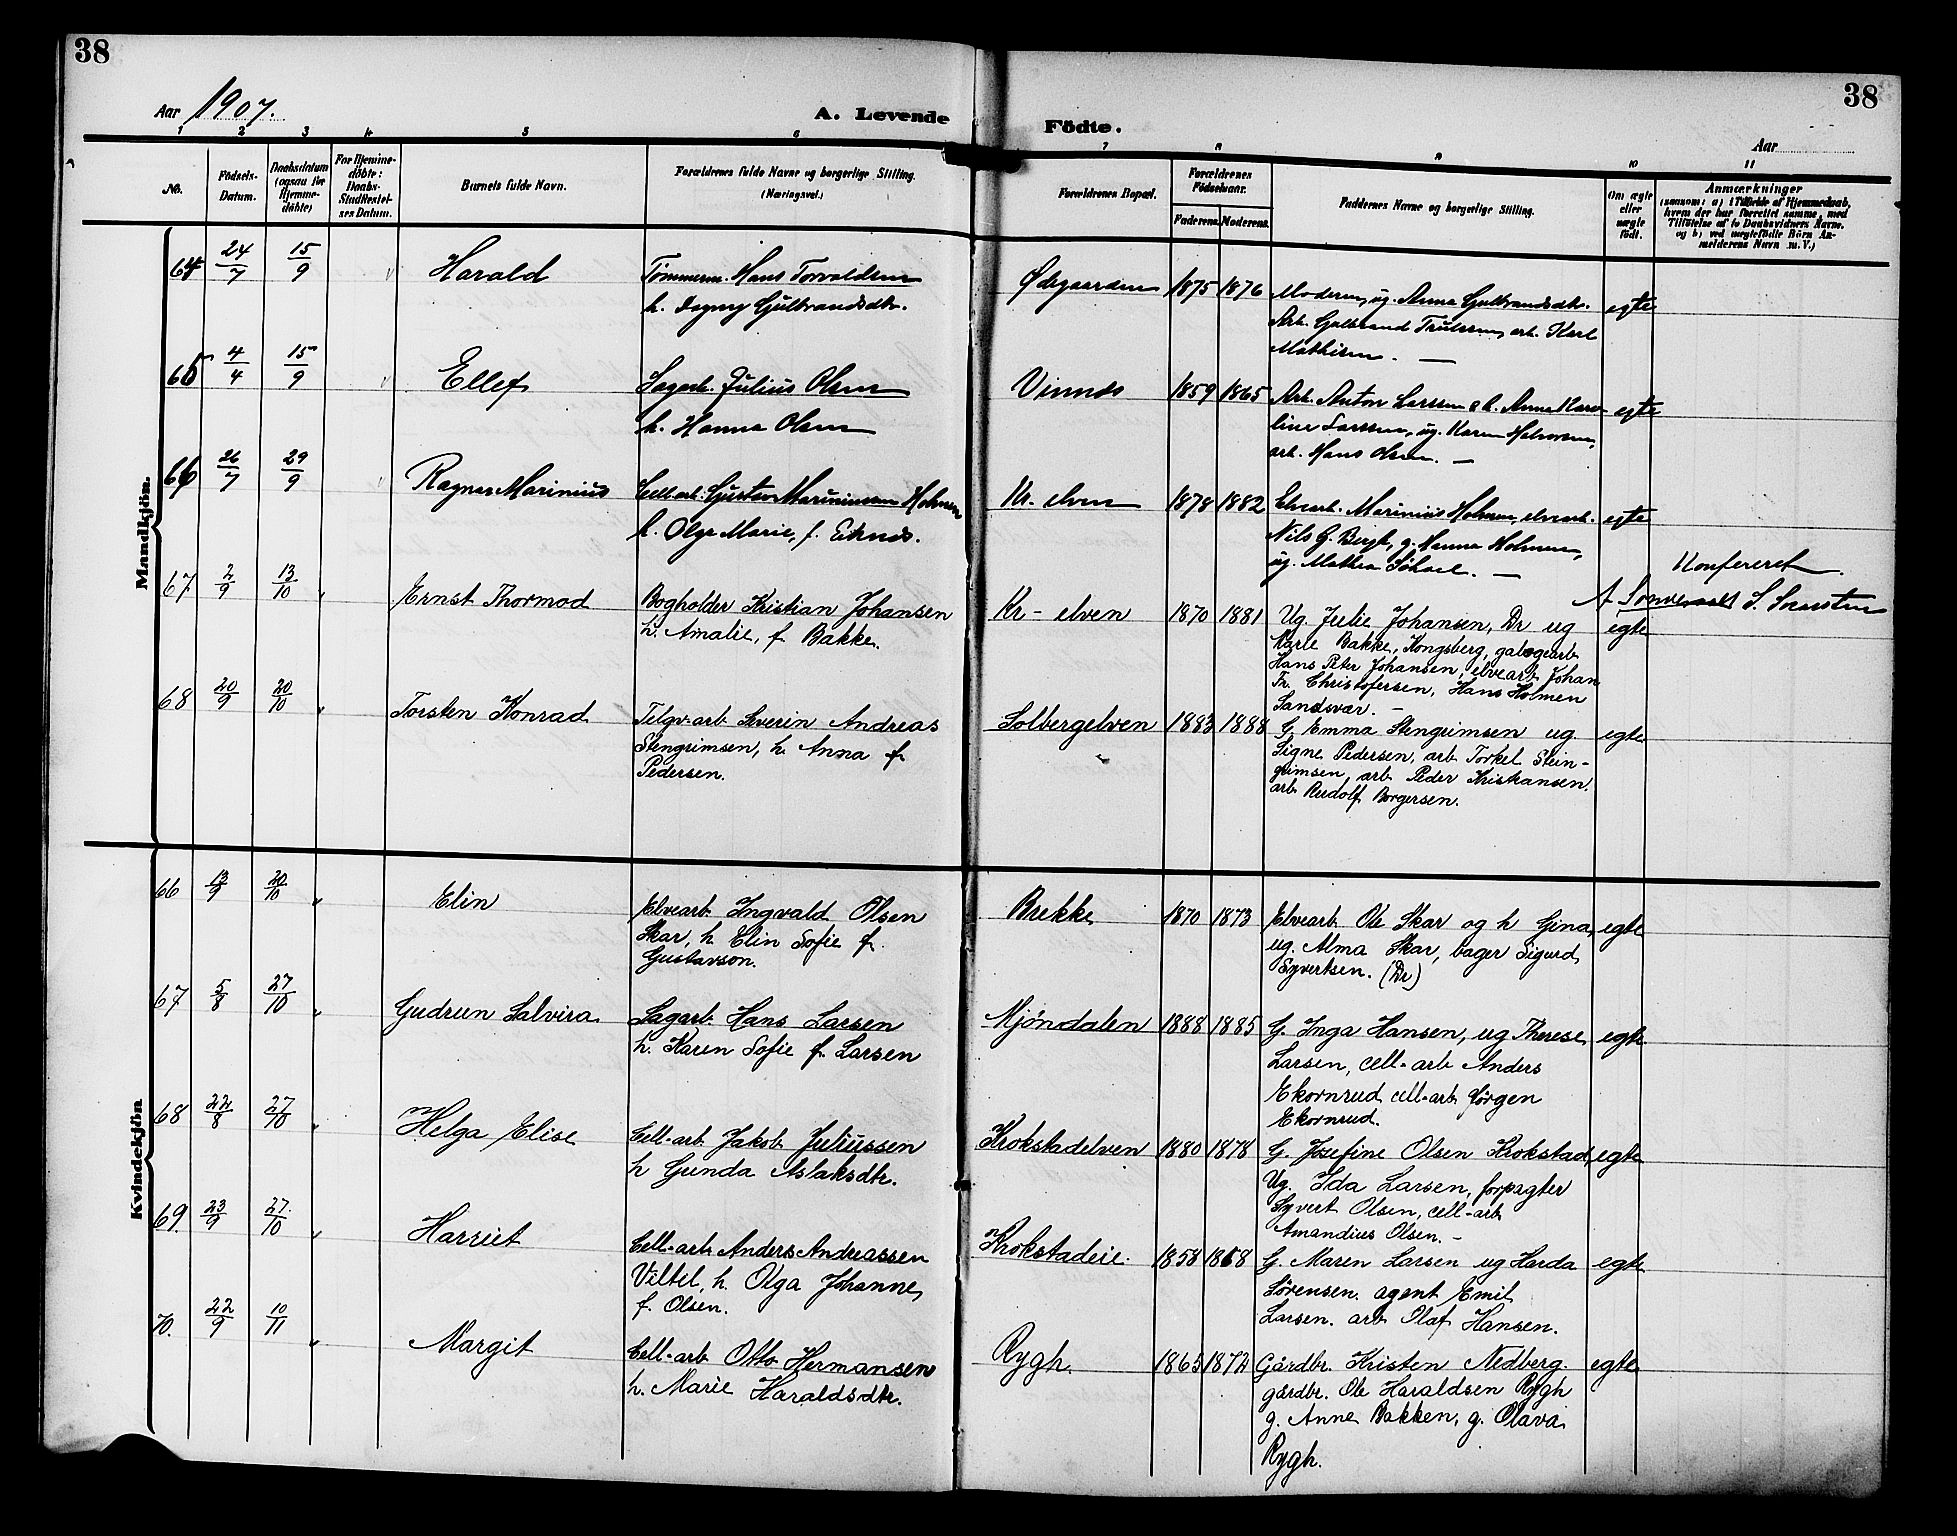 38
38
Aar 1907.
A. Levende
Födte.
Aar
1 2 3 4 5 6 7 8 9 10 11
No.
Födsels-Datum.
Daabsdatum (ogsaa for Hjemmedöbte)
For Hjemmedöbte: Daabs-Stadfæstelses Datum.
Barnets fulde Navn.
Forældrenes fulde Navne og borgerlige Stilling. (Næringsvei.)
Forældrenes Bopæl.
Forældrenes Födselsaar.
Faderens. Moderens.
Faddernes Navne og borgerlige Stilling.
Om ægte eller uægte födt.
Anmærkninger
(saasom: a) i Tilfælde af Hjemmedaab, hvem der har forrettet samme, med Tilföielse af to Daabsvidners Navne, og b) ved uægtefödte Börn Anmelderens Navn m. V.)
Mandkjön.
64 24/7 15/9 " Harald
Tømmerm. Hans Torvaldsen
h. Dagny Gulbrandsdtr.
Ødegaarden 1875 1876
Moderen, ug. Anna Gulbrandsdtr.
Arb. Gulbrand Trulssen, arb. Karl
Mathisen. —
egte
65 4/4 15/9 " Ellef
Sagarb. Julius Olsen
h. Hanna Olsen
Vinnds 1859 1865
Arb. Anton Larssen & h. Anna Karo-
line Larssen, ug. Karen Halvorsen,
arb. Hans Olsen. —
egte
66 26/7 29/9 " Ragnar Marinius
Cell.arb. Gustav Mariniussen Holmen
h. Olga Marie, f. Eknds.
Kr. elven 1878 1882
Elvearb. Marinius Holmen, elvearb.
Nils G. Bergt, g. Hanna Holmen,
ug. Mathea
egte
Konfereret
S. Sorensten
67 2/9 13/10 " Ernst Thormod
Bogholder Kristian Johansen
h. Amalie, f. Bakke.
Kr-elven 1870 1881
Ug. Julie Johansen, Dr ug
Karle Bakke, Kongsberg, garb.
Hans Peter Johansen, elvearb Johan
Fr. Christofersen, Hans Holmen
Sandsvær. —
egte
68 20/9 20/10 " Torsten Konrad
Telgv-arb Severin Andreas
Stengrimsen, h. Anna f.
Pedersen.
Solbergelven 1883 1888
G. Emma Stengrimsen ug
Signe Pedersen, arb Torkel Stein-
grimsen, arb Peder Kristiansen.
arb Rudolf Borgersen.
egte
Kvindekjön
66 13/9 20/10 " Elin
Elvearb. Ingvald Olsen
Skar, h Elin Sofie f.
Gustavson.
Brekke 1870 1873
Elvearb. Ole Skar og h Gina,
ug. Alma Skar, bager Sigurd
Syvertsen. (Dr)
egte
67 5/8 27/10 " Gudrun Salvira
Sagarb. Hans Larsen
h. Karen Sofie f. Larsen
Mjöndalen 1888 1885
G. Inga Hansen, ug Therese
Larsen, cell-arb Anders
Ekornrud cell-arb Jörgen
Ekornrud.
egte
68 22/8 27/10 " Helga Elise
Cell-arb Jakob Juliussen
h Gunda Aslaksdtr.
Krokstadelven 1880 1878
G. Josefine Olsen Krokstad,
Ug. Ida Larsen, forpagter
Syvert Olsen, cell-arb
Amandius Olsen. —
egte
69. 23/9 27/10 " Harriet
Cell-arb Anders Andreassen
Viltel, h. Olga Johanne
f. Olsen.
Krokstadeie. 1858 1868
G. Maren Larsen ug Harda
Sörensen. agent Emil
Larsen. arb Olaf Hansen.
egte
70. 22/9 10/11 " Margit
Cell-arb Otto Hermansen
h. Marie Haraldsdtr.
Rygh. 1865 1872
Gårdbr. Kristen Nedberg.
gårdbr. Ole Haraldsen Rygh
g. Anne Bakken, g. Olava
Rygh.
egte